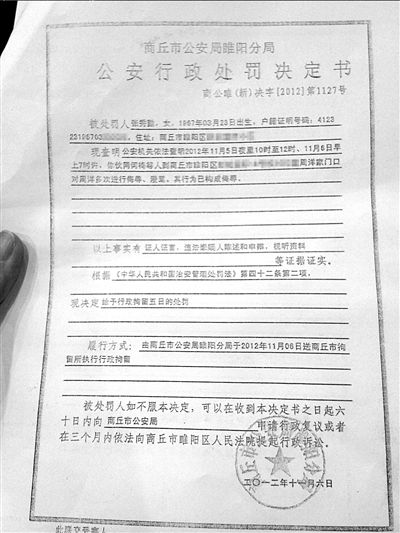 商丘市公安局睢阳分局
公安行政处罚决定书
商公睢(新)决字[2012]第1127号
被处罚人张秀勤,女,1967年03月23日出生,户籍证明号码:4123
23196703,住址:商丘市睢阳区
现查明公安机关依法查明2012年11月5日夜里10时至12时、11月6日早
上7时许,你伙同何锋等人到商丘市睢阳区周洋家门口
对周洋多次进行侮辱、谩骂,其行为已构成侮辱。
以上事实有证人证言,违法嫌疑人陈述和申辩,视听资料
等证据证实。
根据《中华人民共和国治安管理处罚法》第四十二条第二项,
现决定给予行政拘留五日的处罚
履行方式:由商丘市公安局睢阳分局于2012年11月06日送商丘市拘
留所执行行政拘留
被处罚人如不服本决定,可以在收到本决定书之日起六
十日内向商丘市公安局申请行政复议或者
在三个月内依法向商丘市睢阳区人民法院提起行政诉讼。
商丘市公安局睢阳分局
二〇一二年十一月六日